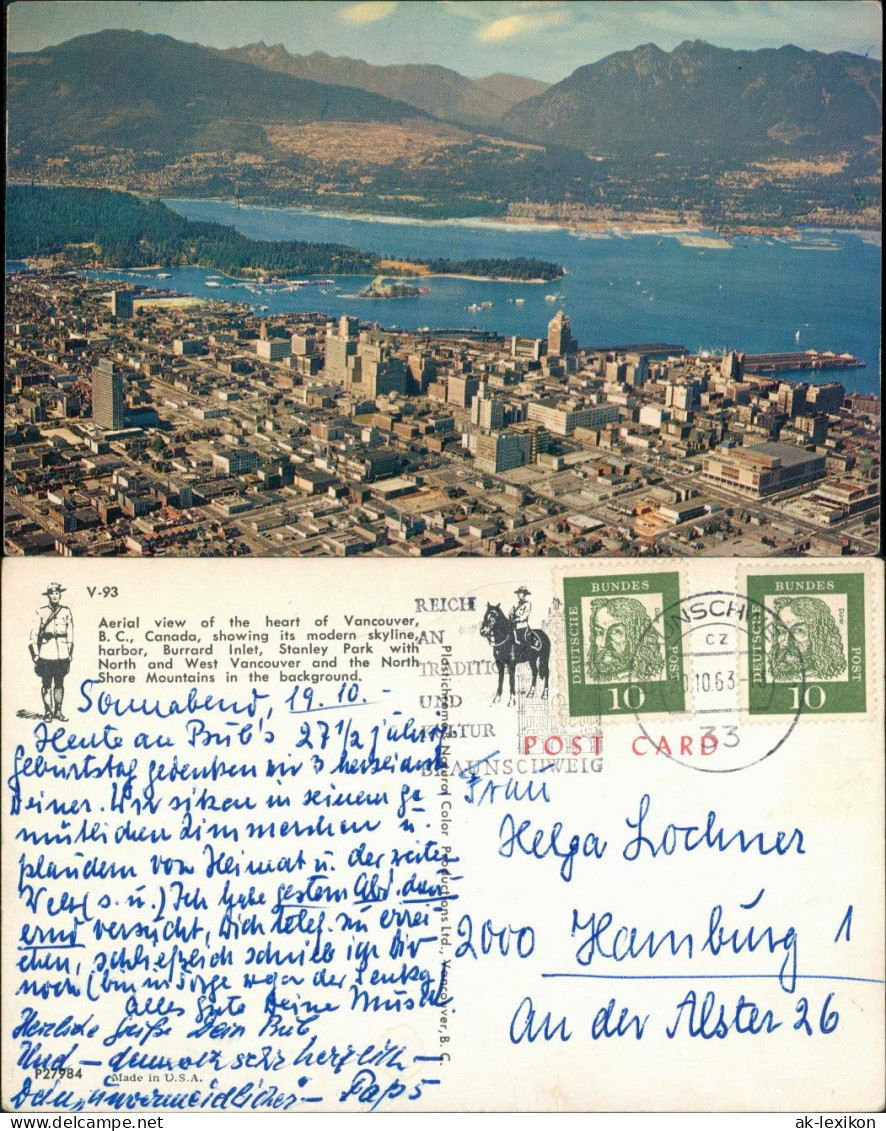 V-93
Aerial view of the heart of Vancouver,
B. C., Canada, showing its modern skyline,
harbor, Burrard Inlet, Stanley Park with
North and West Vancouver and the North
Shore Mountains in the background.
Sonnabend, 19.10.-
Heute an Bub's 27 1/2 jähr.
Geburtstag gedenken wir 3
Deiner. Wir sitzen in seinem ge-
mütlichen Zimmerchen u.
plaudern von Heimat u. der weiten
Welt (s. u.) Ich habe gestern Abd.
versucht, Dich telef. zu errei-
chen, schliesslich schrieb ich Dir
noch (bin in Sorge wegen der
Alles Gute Deine
Herzliche Grüße Dein Bub
Und - sehr herzlich -
Dein "unvermeidlicher" - Paps
P27984
Made in U.S.A.
Plastichrome Natural Color Productions Ltd., Vancouver, B. C.
REICH
AN
TRADITION
UND
KULTUR
BRAUNSCHWEIG
DEUTSCHE BUNDES POST
10
DEUTSCHE BUNDES POST
Dürer
10
cz
20.10.63
33
POST CARD
Frau
Helga Lochner
2000 Hamburg 1
An der Alster 26
ak-lexikon